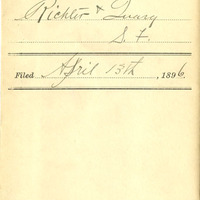 Richter &
S. F.
Filed April 13th, 1896.